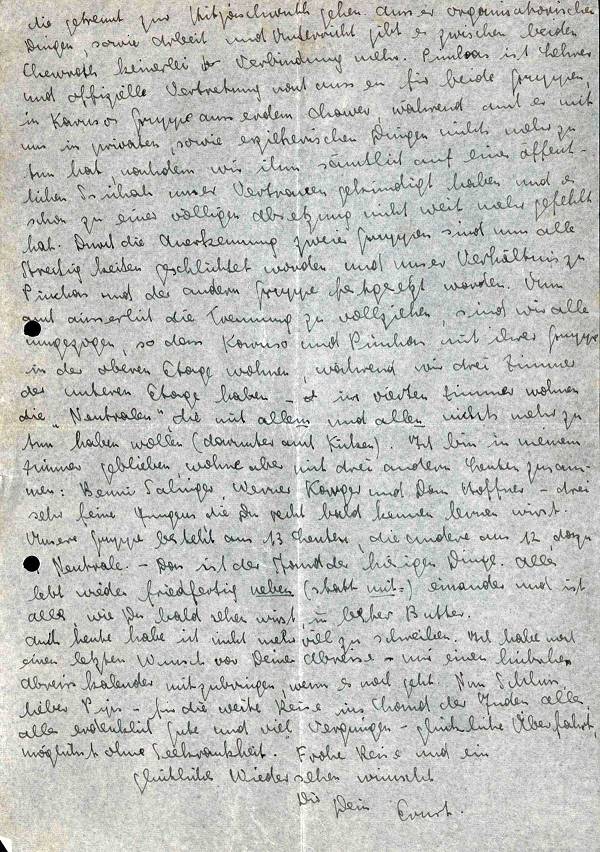 die getrennt zur Hitjaschwuth gehen. Ausser organisatorischen
Dingen sowie Arbeit und Unterricht gibt es zwischen beiden
Chewroth keinerlei Verbindung mehr. Pinchas ist Lehrer
und offizielle Vertretung nach aussen für beide Gruppen,
in Karusos Gruppe ausserdem Chawer, während er mit
uns in privaten, sowie erzieherischen Dingen nichts mehr zu
tun hat, nachdem wir ihm sämtlich auf einer öffent-
lichen Ssichah unser Vertrauen gekündigt haben und es
schon zu einer völligen Absetzung nicht weit mehr gefehlt
hat. Durch die Anerkennung zweier Gruppen sind nun alle
Streitigkeiten geschlichtet worden und unser Verhältnis zu
Pinchas und der andern Gruppe festgesetzt worden. Um
auch äusserlich die Trennung zu vollziehen, sind wir alle
umgezogen, so dass Karuso und Pinchas mit ihrer Gruppe
in der oberen Etage wohnen, während wir drei Zimmer
der unteren Etage haben - im vierten Zimmer wohnen
die "Neutralen" die mit allem und allen nichts mehr zu
tun haben wollen (darunter auch ). Ich bin in meinem
Zimmer geblieben, wohne aber mit drei andern Leuten zusam-
men: Benni Salinger, Werner und Dan Hoffner - drei
sehr feine Jungens die Du recht bald kennen lernen wirst.
Unsere Gruppe besteht aus 13 Leuten, die andere aus 12, dazu
Neutrale. - Das ist der Stand der hiesigen Dinge. Alles
lebt wieder friedfertig neben (statt mit=) einander und ist
alles, wie Du bald sehen wirst, in bester Butter.
Auch heute habe ich nicht mehr viel zu schreiben. Ich habe noch
einen letzten Wunsch vor Deiner Abreise - mir einen hübschen
Abreisskalender mitzubringen, wenn es noch geht. Nun Schluss,
lieber - für die weite Reise ins Land der Juden alles,
alles erdenklich Gute und viel Vergnügen - glückliche Überfahrt,
möglichst ohne Seekrankheit. Frohe Reise und ein
glückliches Wiedersehen wünscht
Dir Dein Ernst.